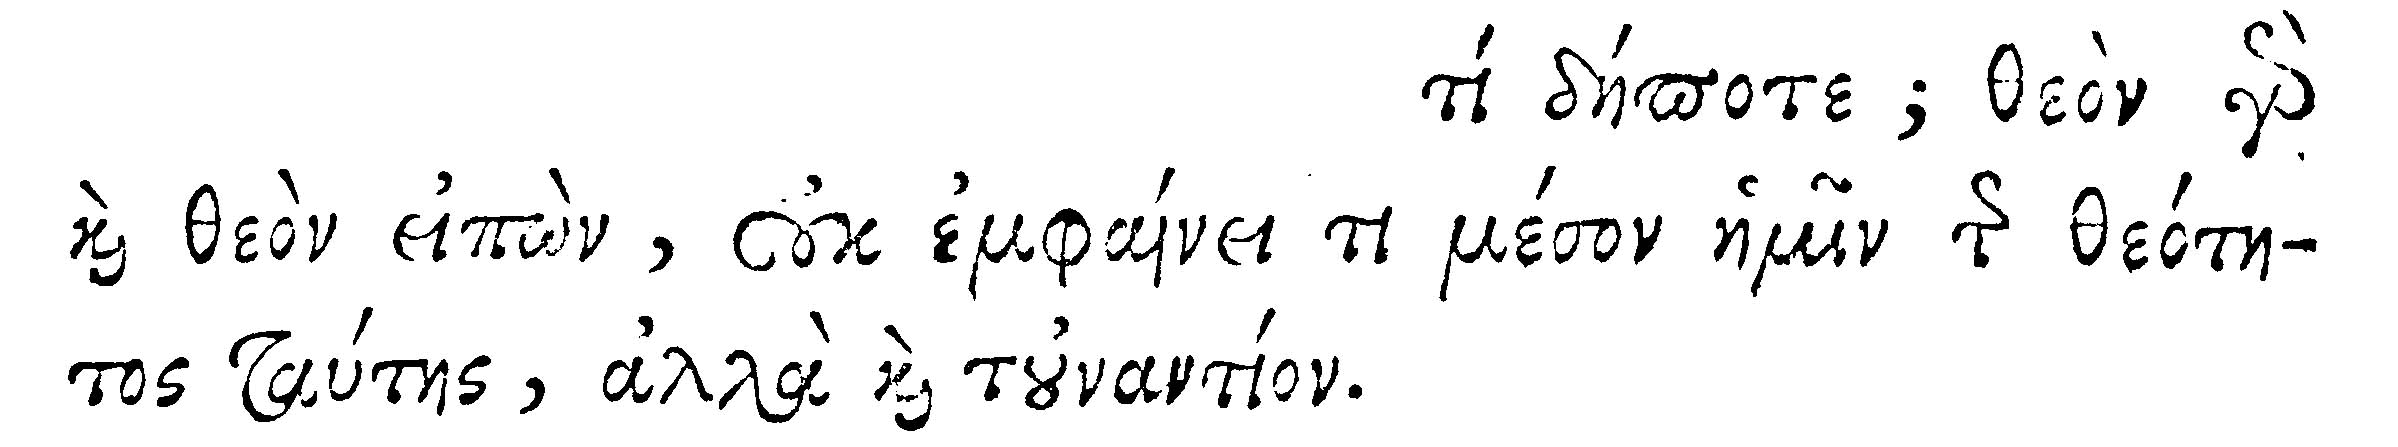 τί δήποτε; θεὸν γὰρ
καὶ θεὸν εἰπὼν, οὐκ ἐμφαίνει τι μέσον ἡμῖν τῆς θεότη-
τος ταύτης, ἀλλὰ καὶ τοὐναντίον.